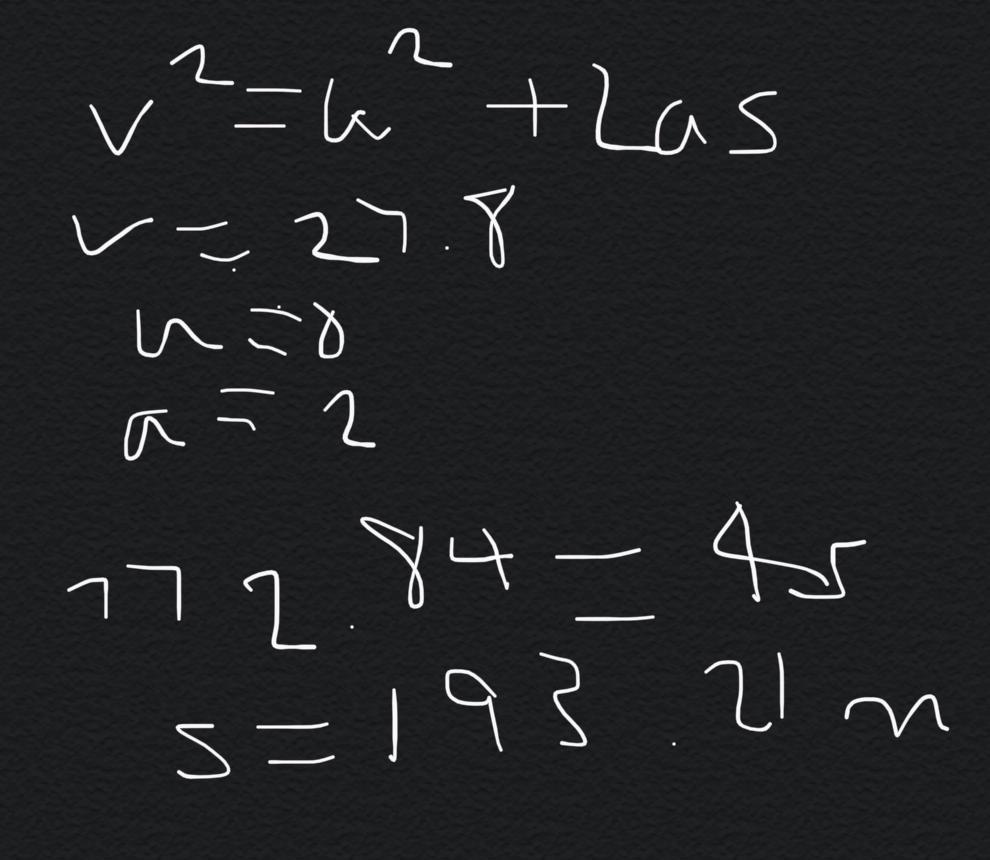 v² = u² + 2as
v = 27.8
u = 0
a = 2
772.84 = 4s
s = 193.21 m